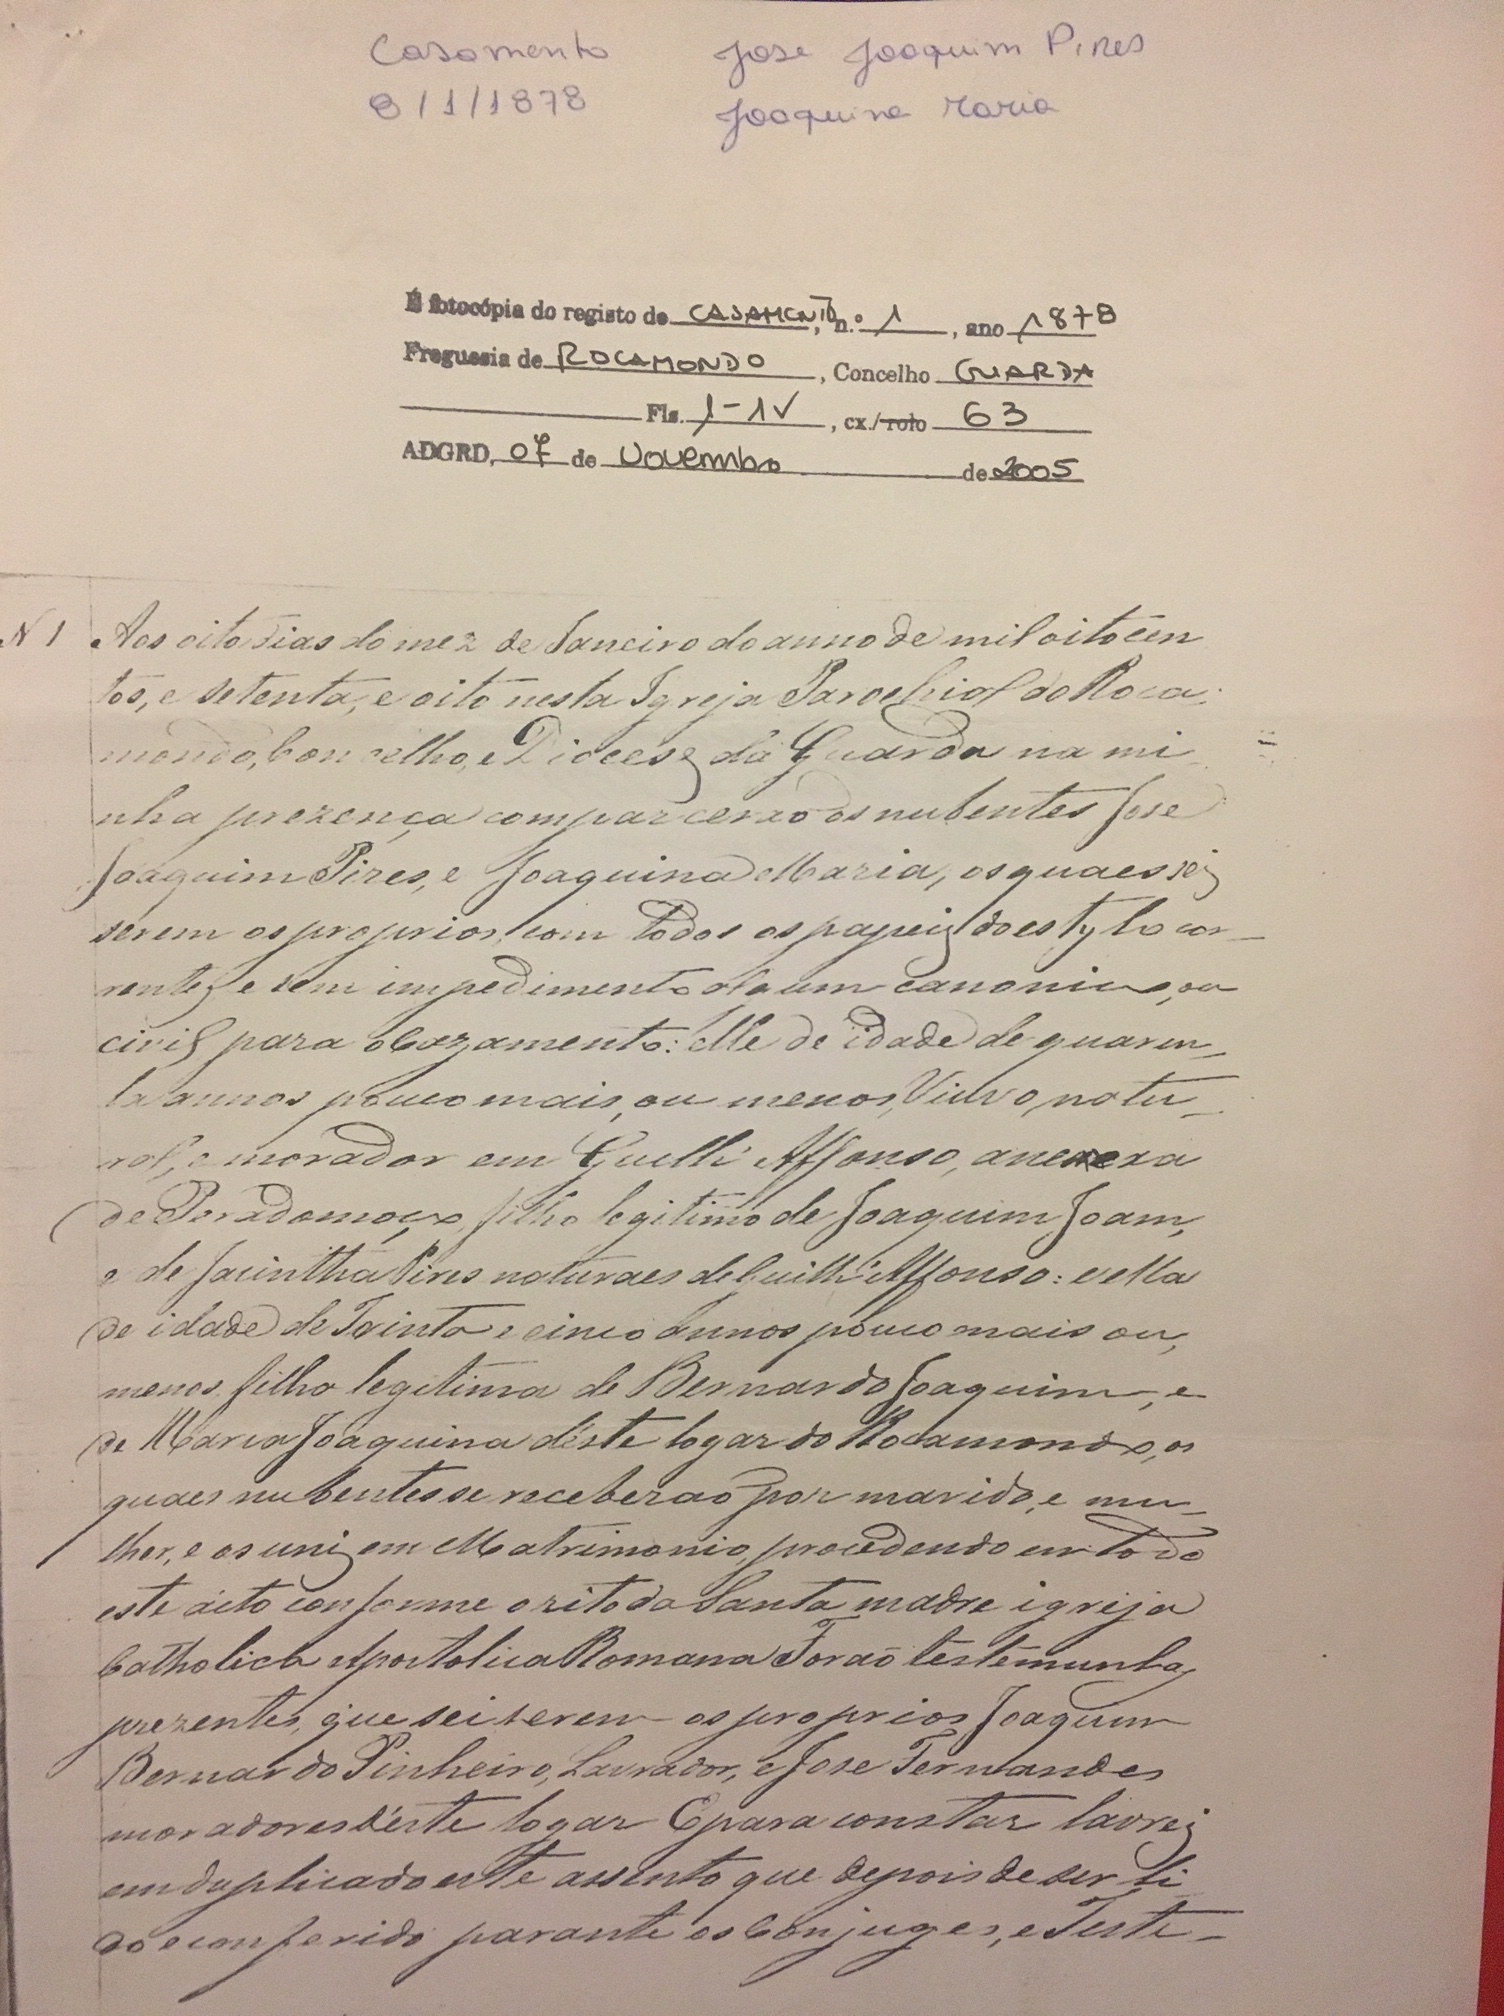 Casamento Jose Joaquim Pires
8/1/1878 Joaquina Maria
É fotocópia do registo de CASAMENTO, n.º 1, ano 1878
Freguesia de ROCAMONDO, Concelho GUARDA
Fls. 1-1V, cx./rolo 63
ADGRD, 07 de Novembro de 2005
N 1 Aos oito dias do mez de Janeiro do anno de mil oitocen
tos, e setenta, e oito nesta Igreja Parochial do Roca-
mondo, Concelho, e Diocese da Guarda na mi
nha prezença comparcerão os nubentes Jose
Joaquim Pires, e Joaquina Maria, os quaes sei
serem os proprios, com todos os papeis do estylo cor-
rentes e sem impedimento algum canonico, ou
civil para o Cazamento: elle de idade de quaren-
ta annos pouco mais, ou menos, Viuvo, natu-
ral, e morador em Guilhe Affonso, anexa
de Pera do moço, filho legitimo de Joaquim Joam,
e de Jacintha Pires naturaes de Guilhe Affonso: e ella
de idade de Trinta e cinco annos pouco mais ou,
menos, filha legitima de Bernardo Joaquim, e
de Maria Joaquina déste logar do Rocamondo, os
quaes nubentes se receberão por marido, e mu-
lher, e os uni em Matrimonio, procedendo em todo
este acto conforme o rito da Santa madre igreja
Catholica Apostolica Romana Forão testemunhas
prezentes, que sei serem os proprios Joaquim
Bernardo Pinheiro, Lavrador, e Jose Fernandes
moradores déste logar E para constar lavrei
em duplicado este assento que depois de ser li
do e conferido parante os Conjuges, e Teste-